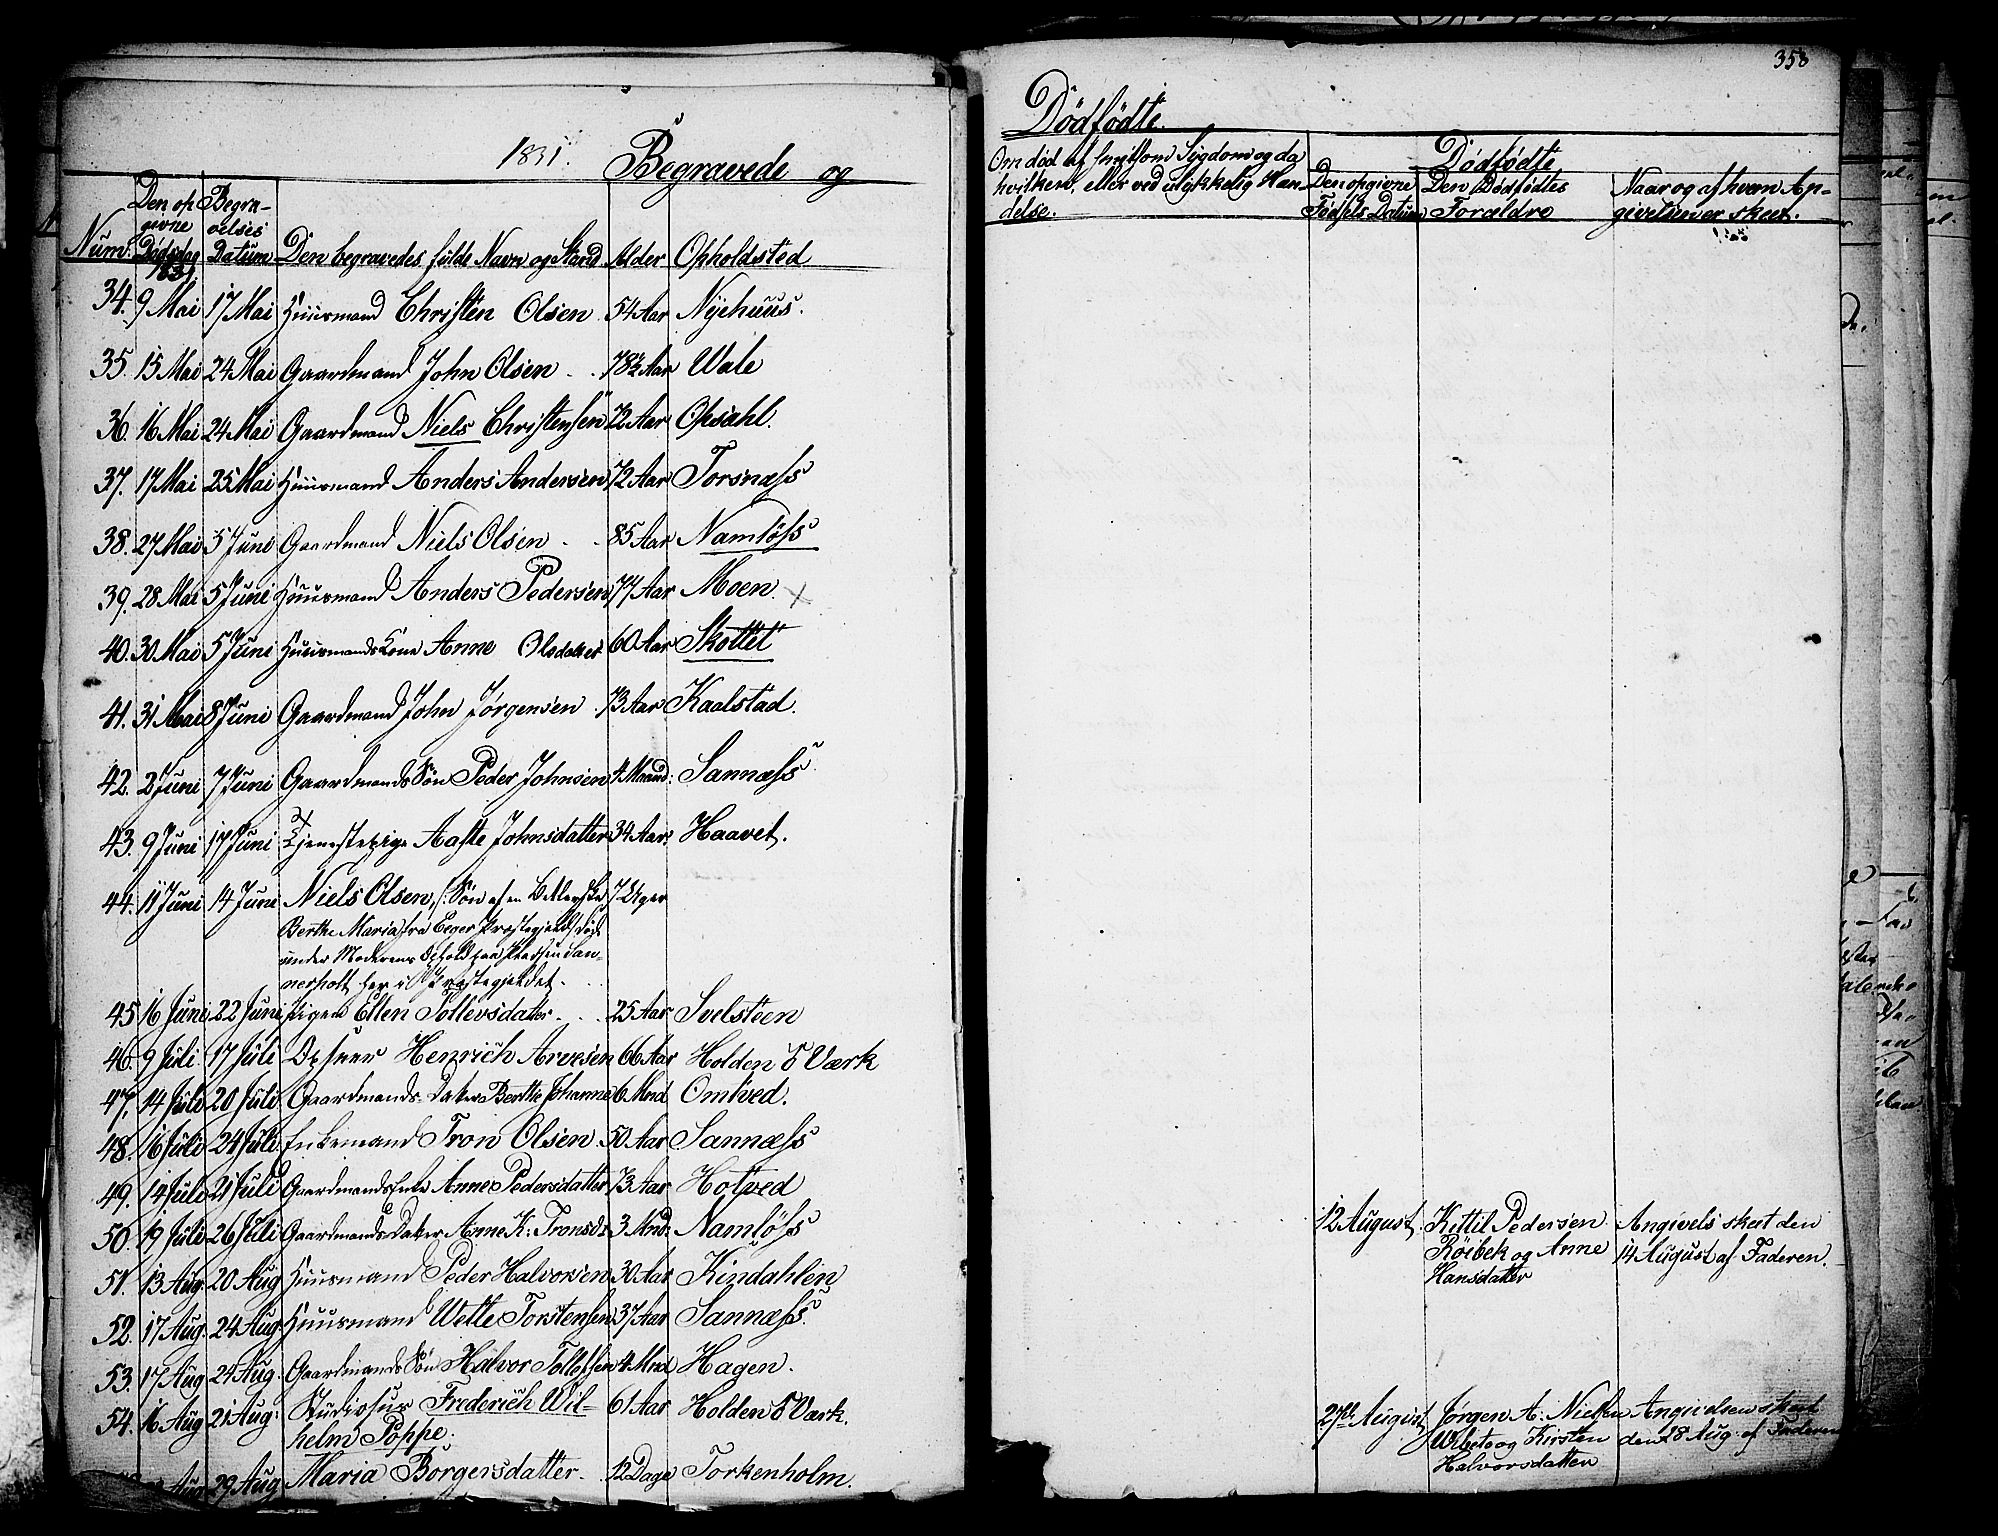 358
1831. Begravede og
Dødfødte.
Num:
Den opgivne Dødsdag
Begravelses Datum
Den begravedes fulde Navn og Stand
Alder
Opholdsted
Om død af smitsom Sygdom og da hvilken, eller ved ulykkelig Handelse.
Den opgivne Fødsels Datum
Dødfødte
Den Dødfødtes Forældre
Naar og af hvem Angivelsen er skeet.
1831
34. 9 Mai 17 Mai Huusmand Christen Olsen 54 Aar Nyehuus.
35. 15 Mai 24 Mai Gaardmand John Olsen 78½ Aar Wale
36. 16 Mai 24 Mai Gaardmand Niels Christensen 72 Aar Opsahl.
37. 17 Mai 25 Mai Huusmand Anders Andersen 72 Aar Torsnæss
38. 27 Mai 5 Juni Gaardmand Niels Olsen 85 Aar Namløss
39. 28 Mai 5 Juni Huusmand Anders Pedersen 77 Aar Moen
40. 30 Mai 5 Juni Huusmands Kone Anne Olsdatter 60 Aar Skottet
41. 31 Mai 8 Juni Gaardmand John Jørgensen 73 Aar Kaalstad.
42. 2 Juni 7 Juni Gaardmands Søn Peder Johnsen 4 Maand: Sannæss
43. 9 Juni 17 Juni Tjenestepige Aaste Johnsdatter 34 Aar. Haavet.
44. 11 Juni 14 Juni Niels Olsen, /: Søn af en Betlerske 7 Uger
Berthe Maria fra Eeger Præstegjeld, død
under Moderens Ophold paa Pladsen San-
nerholt her i Præstegjeldet.
45 16 Juni 22 Juni Pigen Ellen Tollevsdatter 25 Aar Svelsteen
46. 9 Juli 17 Juli Opseer Henrich Arvesen 66 Aar Holden's Værk
47. 14 Juli 20 Juli Gaardmands Datter Berthe Johanne 6 Mnd Omtved.
48. 16 Juli 24 Juli Enkemand Tron Olsen 50 Aar Sannæss
49. 14 Juli 21 Juli Gaardmands Enke Anne Pedersdatter 73 Aar Holtved
50. 19 Juli 26 Juli Gaardmands Datter Anne K: Tronsdr 3 Mnd: Namløss
51. 13 Aug. 20 Aug Huusmand Peder Halvorsen 30 Aar Kindahlen
52. 17 Aug. 24 Aug Huusmand Wette Torstensen 37 Aar Sannæss.
53. 17 Aug 24 Aug. Gaardmands Søn Halvor Tollefsen 4 Mnd Hagen.
54. 16 Aug 21 Aug: Studiosus Frederich Wil- 61 Aar Holden's Værk.
helm Poppe.
Aug 29 Aug Maria Børgersdatter 12 Dage Torkenholm.
12 August, Kittil Pedersen Angivels skeet den
Røibek og Anne 14 August af Faderen.
Hansdatter
27de August Jørgen A: Nielsen Angivelsen skeet
Wibeto og Kirsten den 28 Aug. af Faderen
Halvorsdatter